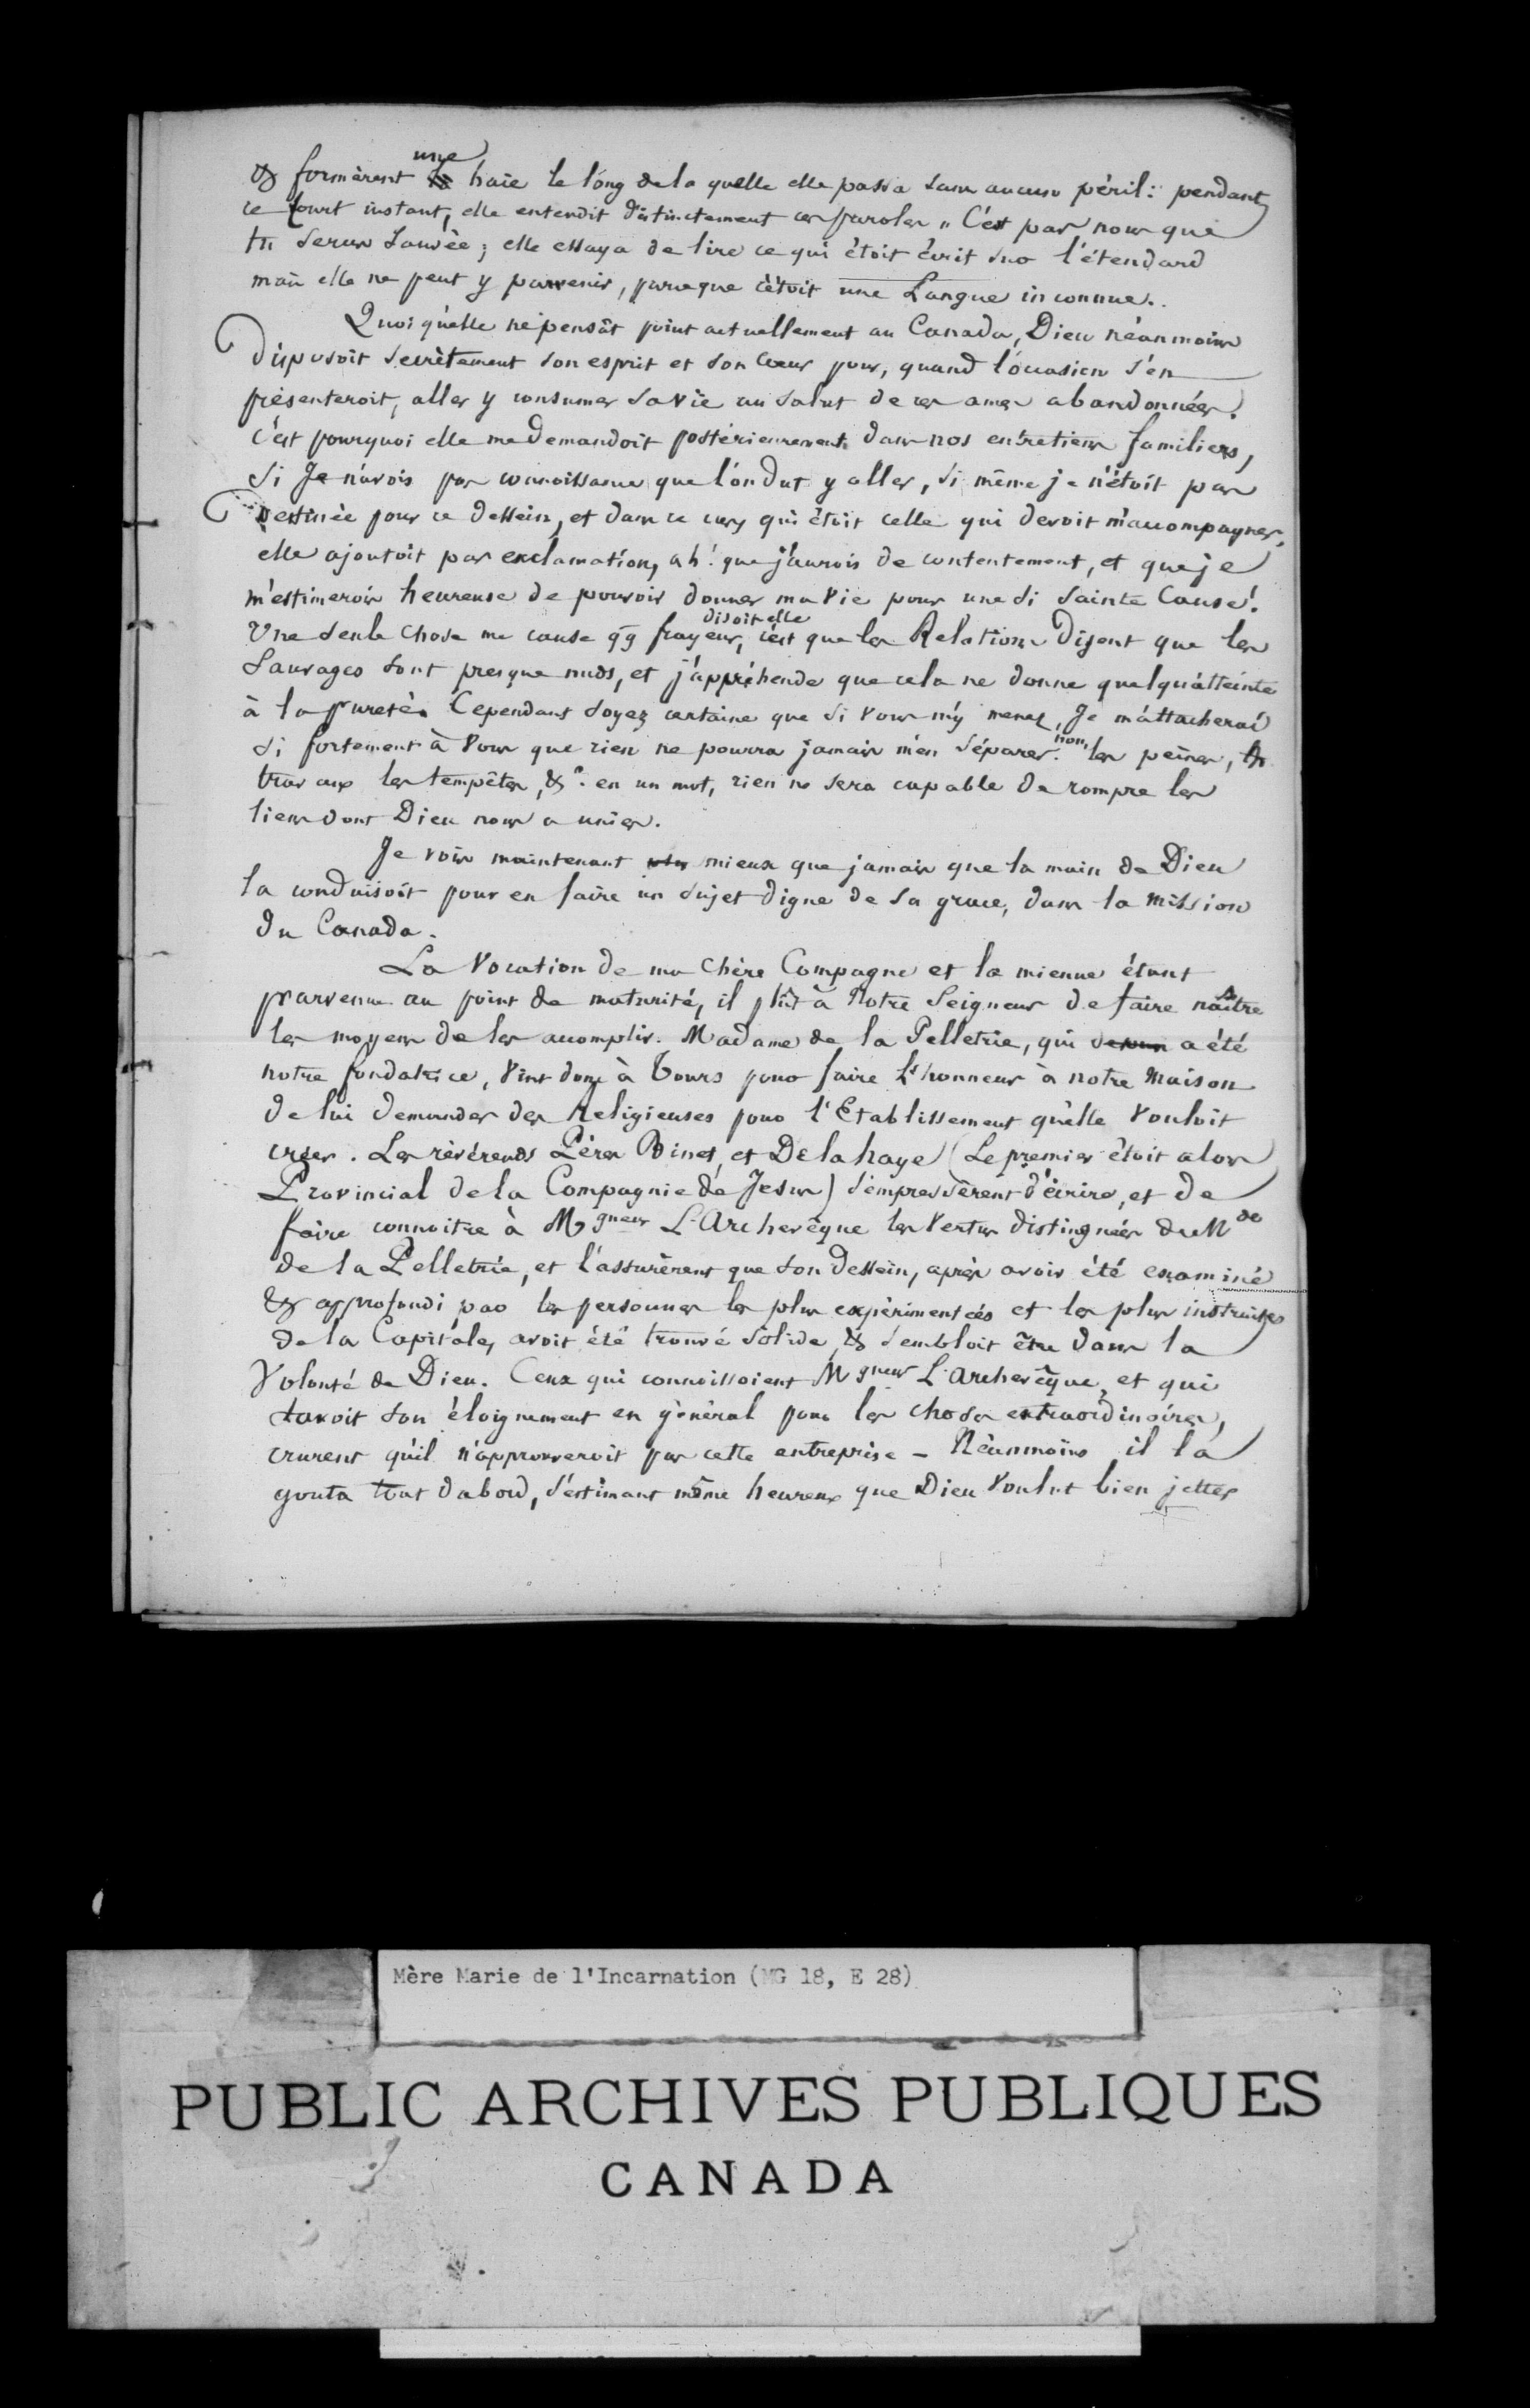 & formèrent une haïe le lóng de la quelle elle passa sans aucun péril : pendant
ce court instant, elle entendit distinctement ces paroles „ C'est par nous que
tu seras sauvèe ; elle essaya de lire ce qui étoit écrit sur l'étendard
mais elle ne peut y parvenir, parceque c'étoit une Langue inconnue.
Quoiqu'elle ne pensât point actuellement au Canada, Dieu néanmoins
disposoit secrètement son esprit et son Cœur pour, quand l'occasion s'en
présenteroit, aller y consumer sa vie au salut de ces ames abandonnées.
C'est pourquoi elle me demandoit postérieurement dans nos entretiens familiers,
si Je n'avois pas connoissance que l'on dut y aller, si même je n'étoit pas
destinée pour ce dessein, et dans ce cas, qui étoit celle qui devoit m'accompagner,
elle ajoutoit par exclamation, ah ! que j'aurois de contentement, et que je
m'estimerois heureuse de pouvoir donner ma vie pour une si sainte Cause !
disoit elle
Une seule chose me cause qq frayeur, c'est que les Relations disent que les
Sauvages sont presque nuds, et j'appréhende que cela ne donne quelqu'atteinte
à la pureté. Cependant soyez certaine que si vous m'y menez, Je m'attacherai
si fortement à vous que rien ne pourra jamais m'en séparer. non, les peines, les
travaux les tempêtes, &c. en un mot, rien ne sera capable de rompre les
liens dont Dieu nous a unies.
Je vois maintenant mieux que jamais que la main de Dieu
la conduisoit pour en faire un sujet digne de sa grace, dans la Mission
du Canada.
La Vocation de ma chère Compagne et la mienne étant
parvenue au point de maturité, il plût à Notre Seigneur de faire naître
les moyens de les accomplir. Madame de la Pelletrie, qui depuis a été
notre fondatrice, vint donc à Tours pour faire L'honneur à notre Maison
de lui demander des Religieuses pour l'Etablissement qu'elle vouloit
créer. Les rèvérends Pères Binet, et Delahaye (Le premier étoit alors
Provincial de la Compagnie de Jesus) s'empressèrent d'écrire, et de
faire connoitre à Mgneur L'Archevêque les vertus distinguées de Mde
de la Pelletrie, et l'assurèrent que son dessein, après avoir été examiné
& approfondi par les personnes les plus expérimentées et les plus instruites
de la Capitale, avoit été trouvé solide, & sembloit être dans la
Volonté de Dieu. Ceux qui connoissoient Mgneur L'Archevêque, et qui
savoit son éloignement en général pour les choses extraordinaires,
crurent qu'il n'approuveroit pas cette entreprise - Néanmoins il la
gouta tout d'abord, s'estimant même heureux que Dieu voulut bien jetter
Mère Marie de l'Incarnation (MG 18, E 28)
PUBLIC ARCHIVES PUBLIQUES
CANADA